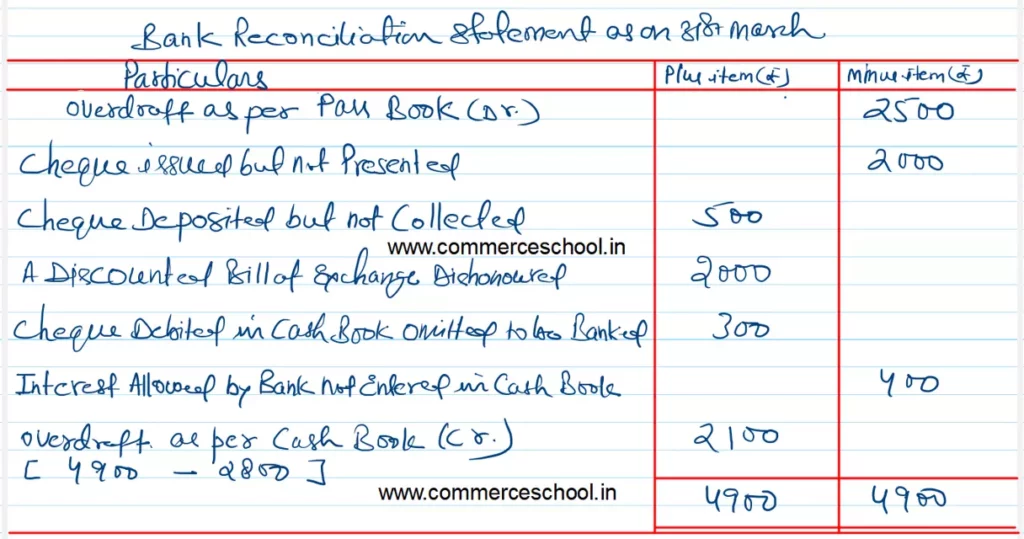 Bank Reconciliation Statement as on 31st march
Particulars Plus item(₹) Minus item(₹)
overdraft as per Pass Book (Dr.) 2500
Cheque issued but not Presented 2000
Cheque Deposited but not Collected 500
www.commerceschool.in
A Discounted Bill of Exchange Dishonoured 2000
Cheque Debited in Cash Book omitted to be Banked 300
Interest Allowed by Bank not Entered in Cash Book 400
overdraft as per Cash Book (Cr.) 2100
[ 4900 - 2800 ]
www.commerceschool.in
4900 4900